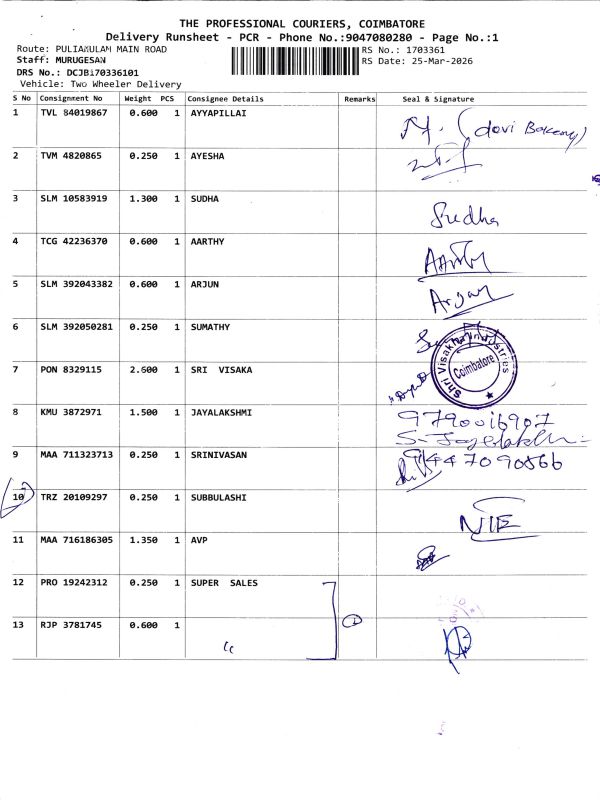 THE PROFESSIONAL COURIERS, COIMBATORE
Delivery Runsheet - PCR - Phone No.:9047080280 - Page No.:1
Route: PULIAKULAM MAIN ROAD
RS No.: 1703361
Staff: MURUGESAN
RS Date: 25-Mar-2026
DRS No.: DCJBi70336101
Vehicle: Two Wheeler Delivery
S No Consignment No Weight PCS Consignee Details Remarks Seal & Signature
1 TVL 84019867 0.600 1 AYYAPILLAI
(devi Bakery)
2 TVM 4820865 0.250 1 AYESHA
3 SLM 10583919 1.300 1 SUDHA
Sudha
4 TCG 42236370 0.600 1 AARTHY
Aarthy
5 SLM 392043382 0.600 1 ARJUN
Arjun
6 SLM 392050281 0.250 1 SUMATHY
Shri Visakha Industries
Coimbatore
7 PON 8329115 2.600 1 SRI VISAKA
8 KMU 3872971 1.500 1 JAYALAKSHMI
9790016907
S. Jayalakshmi
9 MAA 711323713 0.250 1 SRINIVASAN
9447090566
10 TRZ 20109297 0.250 1 SUBBULASHI
NIE
11 MAA 716186305 1.350 1 AVP
12 PRO 19242312 0.250 1 SUPER SALES
13 RJP 3781745 0.600 1 "
2